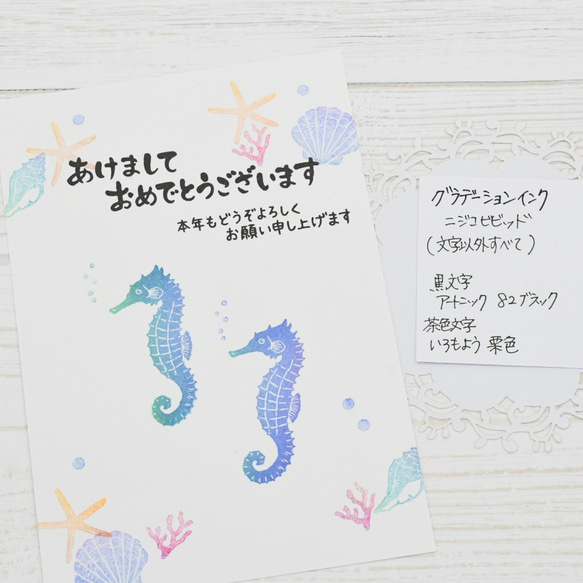 あけまして
おめでとうございます
本年もどうぞよろしく
お願い申し上げます
グラデーションインク
ニジコビビッド
(文字以外すべて)
黒文字
アートニック 82ブラック
茶色文字
いろもよう 栗色